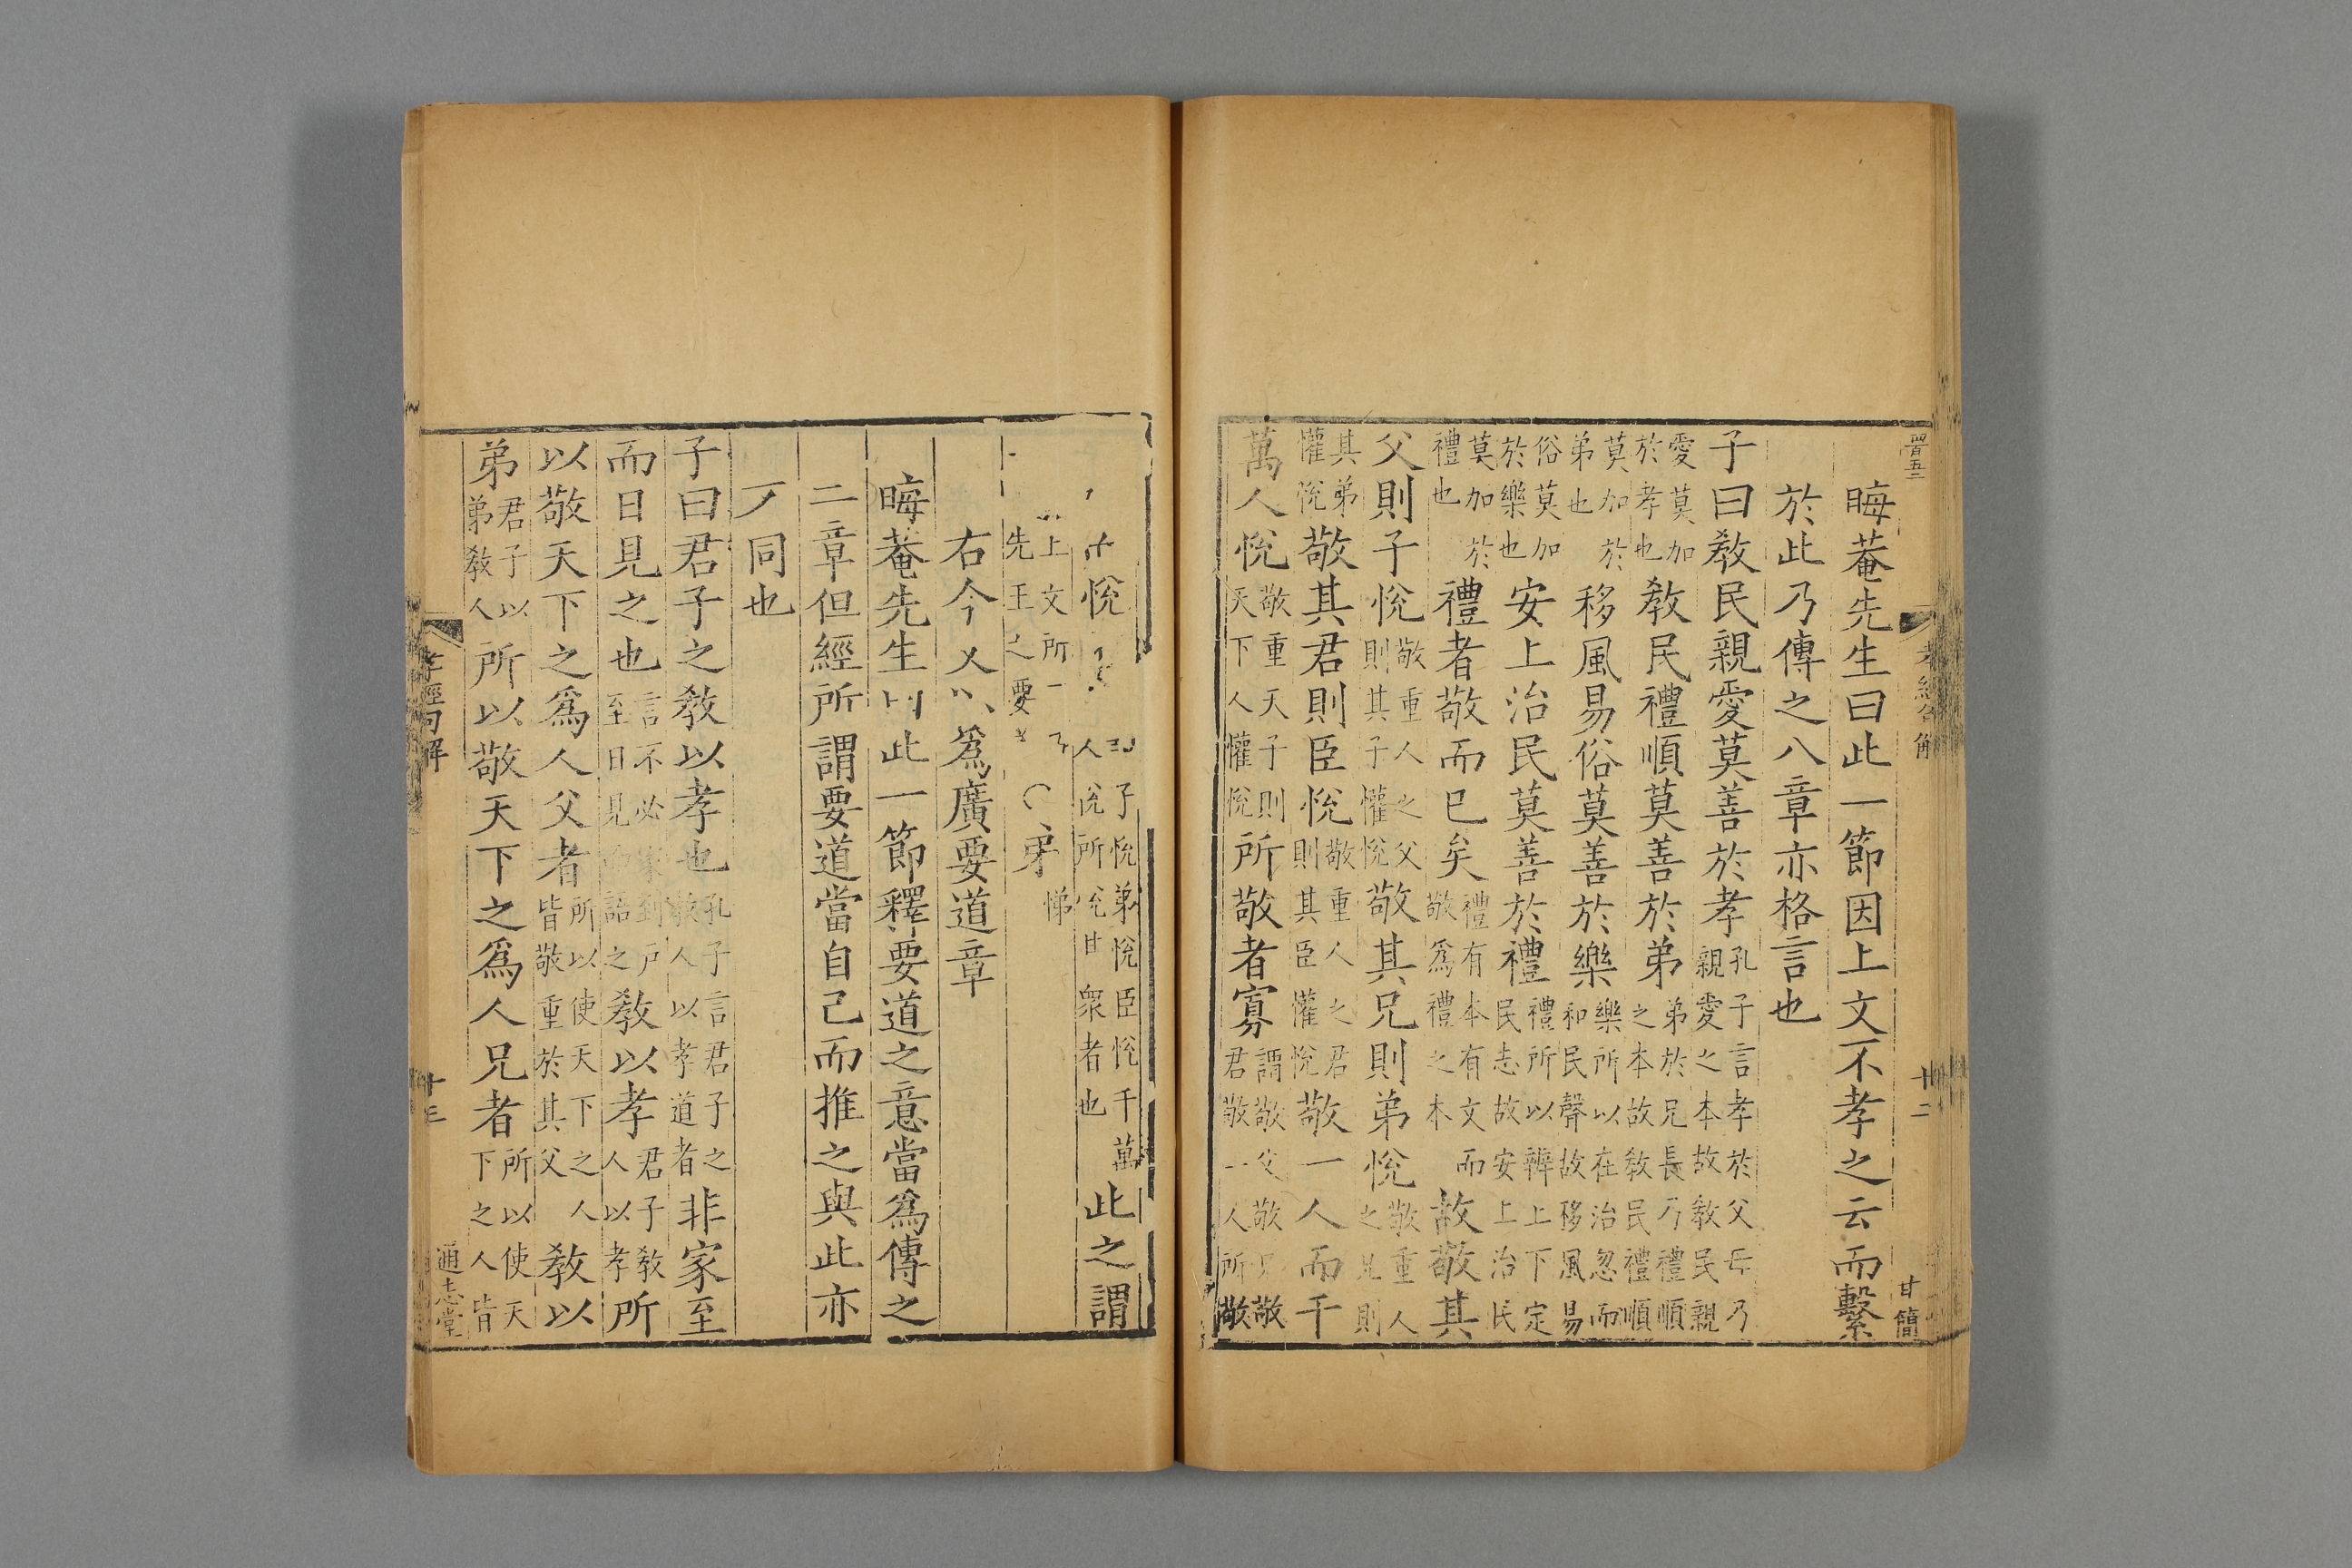 晦菴先生曰此一節因上文不孝之云而繫
於此乃傳之八章亦格言也
子曰教民親愛莫善於孝孔子言孝於父母乃親愛之本故教民親
愛莫加於孝也教民禮順莫善於弟弟於兄長乃禮順之本故教民禮順
莫加於弟也移風易俗莫善於樂樂所以在治忽而和民聲故移風易
俗莫加於樂也安上治民莫善於禮禮所以辨上下定民志故安上治民
莫加於禮也禮者敬而已矣禮有本有文而敬爲禮之本故敬其
父則子悅敬重人之父則其子懽悅敬其兄則弟悅敬重人之兄則
其弟懽悅敬其君則臣悅敬重人之君則其臣懽悅敬一人而千
萬人悅敬重天子則天下人懽悅所敬者寡謂敬父敬兄敬君敬一人所敬
孝經句解
十二
甘簡
悅子悅弟悅臣悅千萬人悅所悅甘衆者也此之謂
上文所先王之要
弟悌
右今文爲廣要道章
晦菴先生曰此一節釋要道之意當爲傳之
二章但經所謂要道當自己而推之與此亦
同也
子曰君子之教以孝也孔子言君子之教人以孝道者非家至
而日見之也言不必家到戶至日見而語之教以孝君子教人以孝所
以敬天下之爲人父者所以使天下之人皆敬重於其父教以
弟君子以弟教人所以敬天下之爲人兄者所以使天下之人皆
孝經句解
十三
通志堂